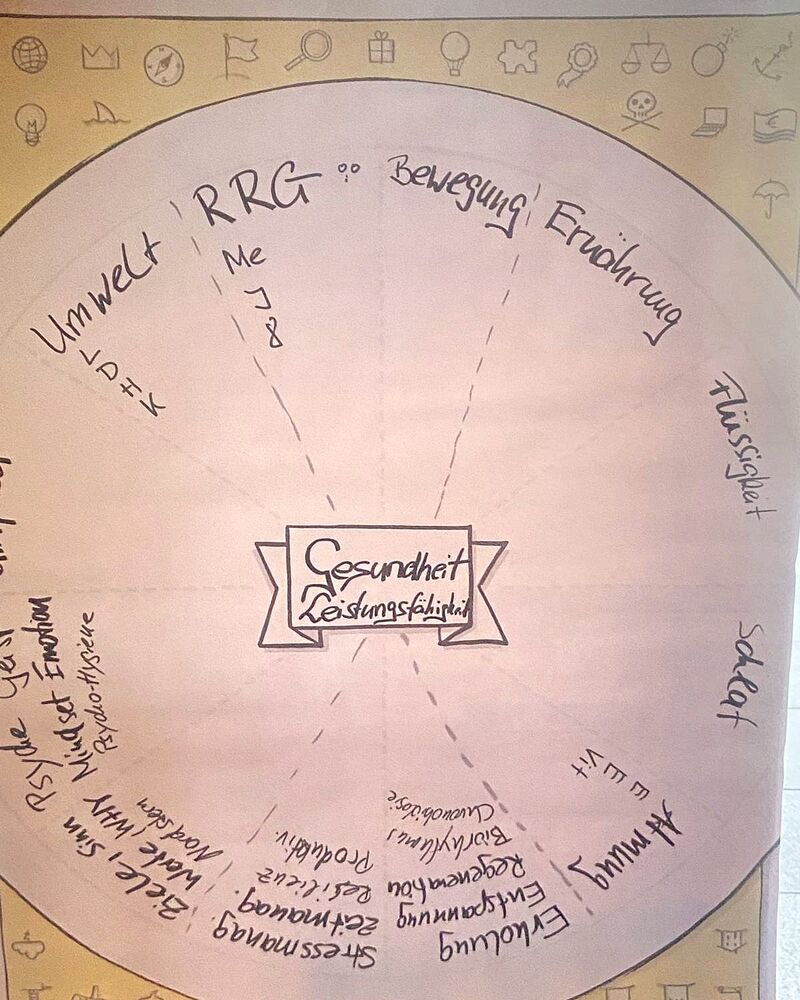 RRG
Me
J
8
Bewegung
Ernährung
Flüssigkeit
Schlaf
Atmung
E
E
Vit
Erholung
Entspannung
Regeneration
Biorhythmus
Chronobiologie
Stressmanag.
Zeitmanag.
Resilienz
Produktiv.
Ziele, Sinn
Werte, WHY
Nordstern
Psyche Geist
Mindset Emotion
Psycho-Hygiene
Umwelt
L
D
H
K
Gesundheit
Leistungsfähigkeit